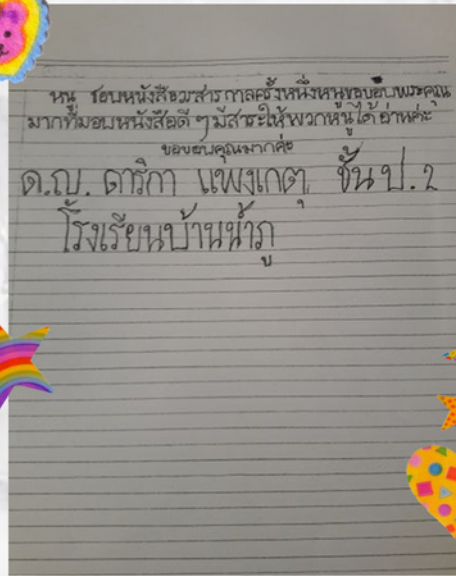 หนู ชอบหนังสือวารสารกาลครั้งหนึ่งหนูขอบอบพระคุณ
มากที่มอบหนังสือดี ๆ มีสาระให้พวกหนูได้อ่านค่ะ
ขอขอบคุณมากค่ะ
ด.ญ. ดาริกา แพงเกตุ ชั้น ป. 2
โรงเรียนบ้านน้ำภู